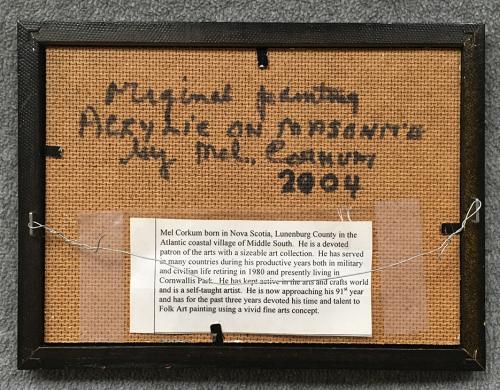 Original painting
ACRYLIC ON MASONITE
by Mel. CORKUM
2004
Mel Corkum born in Nova Scotia, Lunenburg County in the
Atlantic coastal village of Middle South. He is a devoted
patron of the arts with a sizeable art collection. He has served
in many countries during his productive years both in military
and civilian life retiring in 1980 and presently living in
Cornwallis Park. He has kept active in the arts and crafts world
and is a self-taught artist. He is now approaching his 91st year
and has for the past three years devoted his time and talent to
Folk Art painting using a vivid fine arts concept.